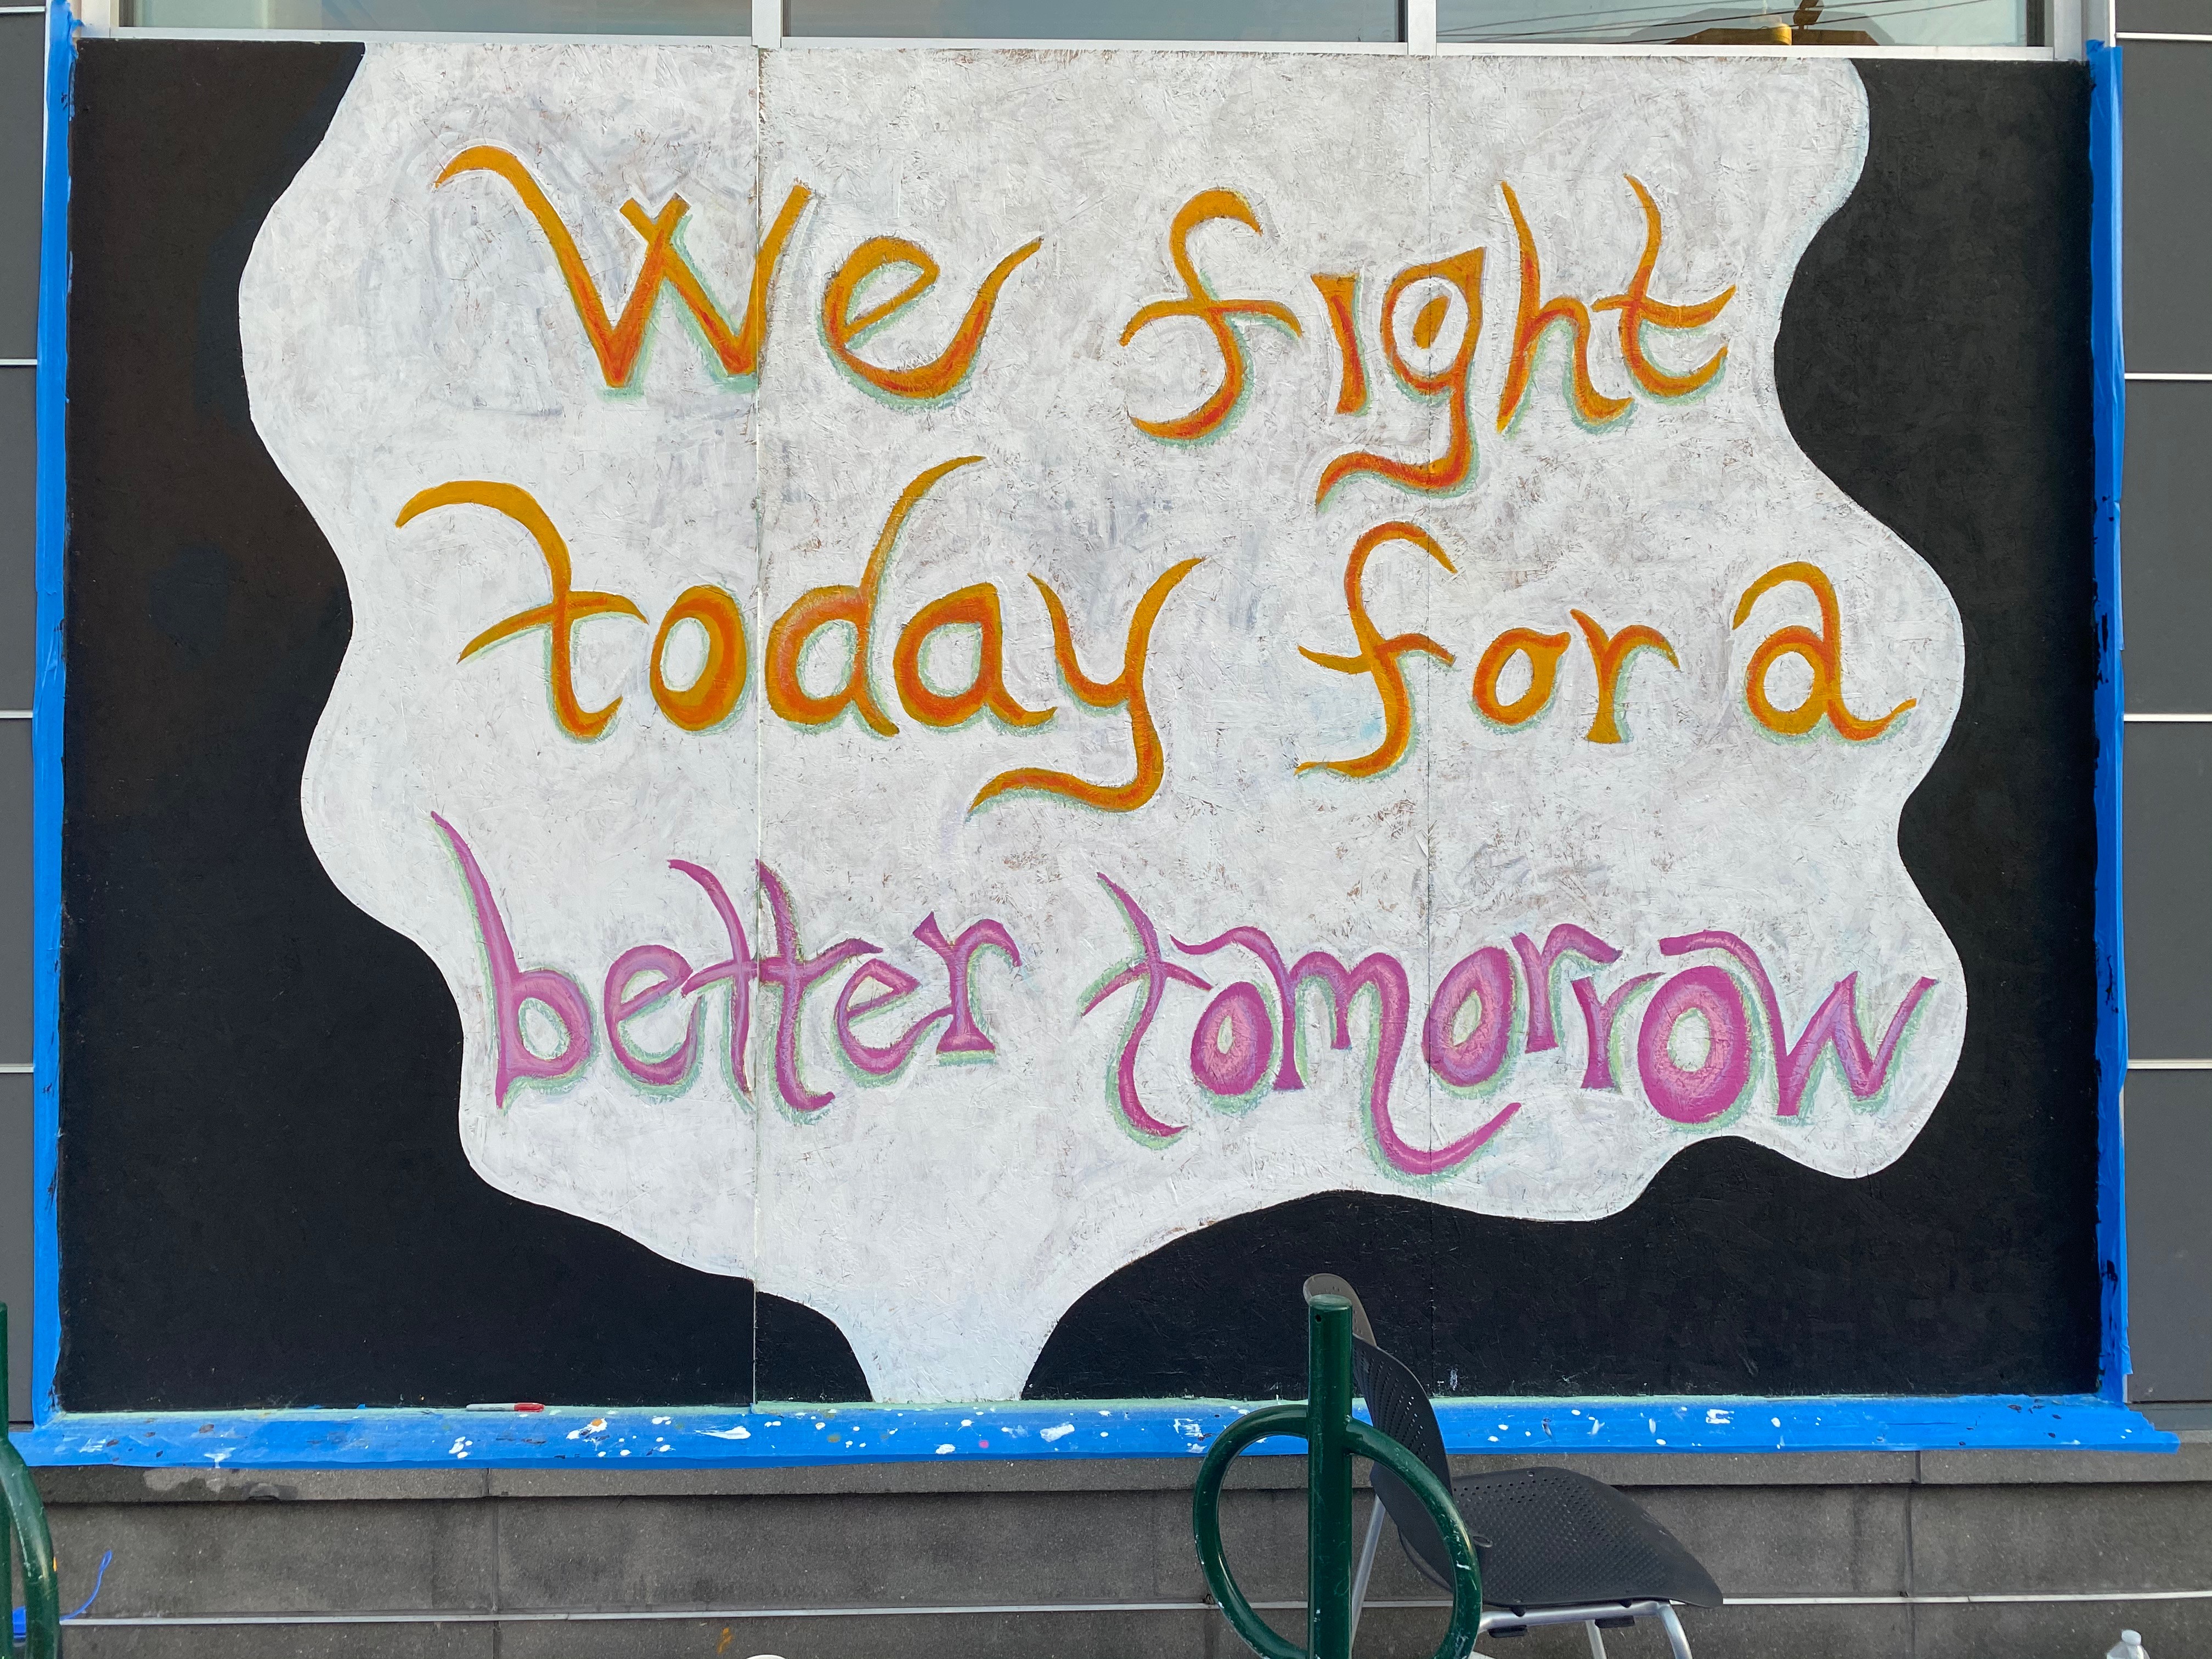 We fight
today for a
better tomorrow